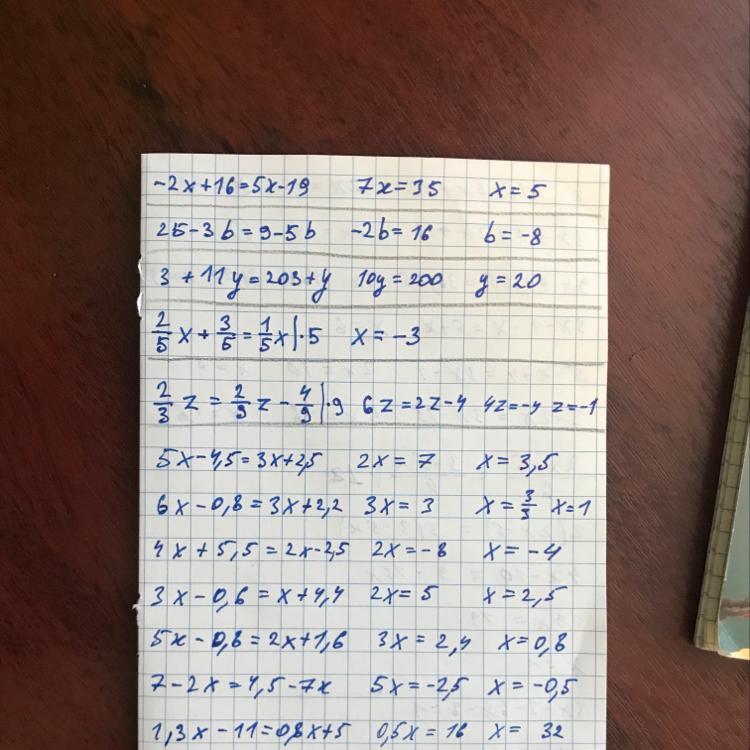 -2x+16=5x-19 7x=35 x=5
25-3b=9-5b -2b=16 b=-8
3+11y=203+y 10y=200 y=20
2/5 x + 3/5 = 1/5 x |·5 x=-3
2/3 z = 2/9 z - 4/9 |·9 6z=2z-4 4z=-4 z=-1
5x-4,5=3x+2,5 2x=7 x=3,5
6x-0,8=3x+2,2 3x=3 x=3/3 x=1
4x+5,5=2x-2,5 2x=-8 x=-4
3x-0,6=x+4,4 2x=5 x=2,5
5x-0,8=2x+1,6 3x=2,4 x=0,8
7-2x=4,5-7x 5x=-2,5 x=-0,5
1,3x-11=0,8x+5 0,5x=16 x= 32